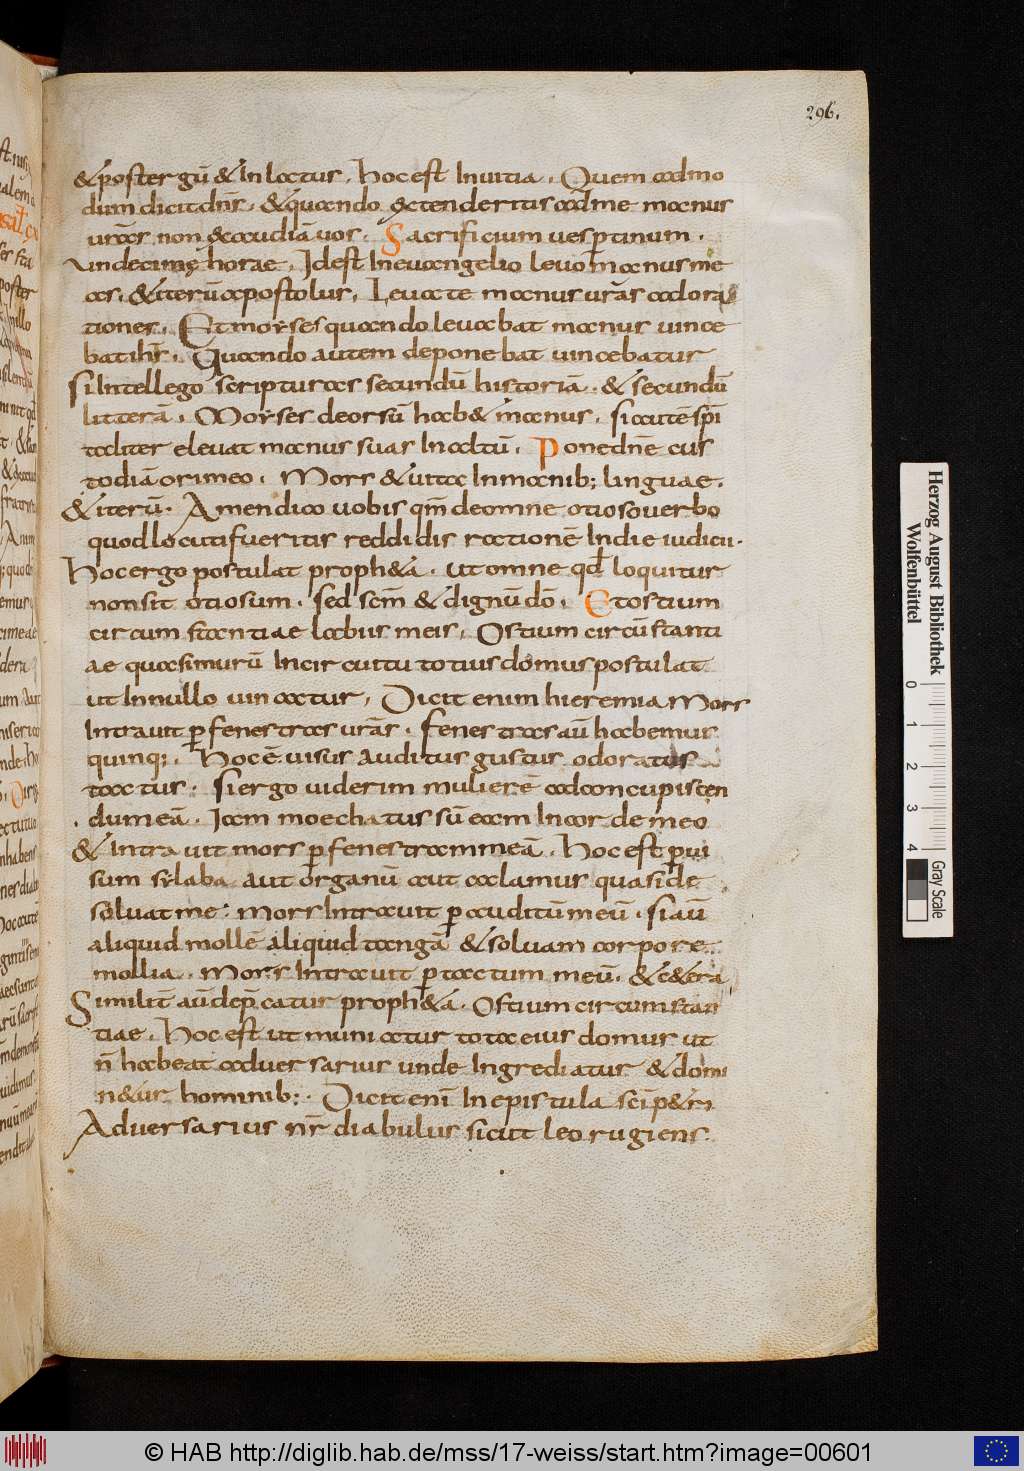 296.
& post ergū & In lactus. Hoc est In uitia. Quem admo
dum dicit dn̄s. & quando extenderitis ad me manus
urās non exaudiā uos. Sacrificium uesp̄tinum.
undecimę horae. Idest In euangelio leuom̄ manus me
as. & iterū apostolus. Leuate manus urās adora
tiones. Et moyses quando leuabat manus uince
bat ihs̄. Quando autem deponebat uincebatur
si Intellego scripturas secundū historiā. & secundū
litterā. Moyses deorsū hab& manus. si aute sp̄i
taliter eleuat manus suas In altū. Pone dn̄e cus
todiā ori meo. Mors & uita In manib; linguae.
& iterū. Amen dico uobis qm̄ de omne otioso uerbo
quod locuti fueritis reddidis rationē In die iudicii.
Hoc ergo postulat proph&a. ut omne qd̄ loquitur
non sit otiosum. sed sc̄m & dignū dō. Et ostium
circumstantiae labiis meis. Ostium circūstanti
ae quasi murū In circuitu totius domus postulat
ut In nullo uincatur. Dicit enim hieremia Mors
Intrauit p̄ fenestras urās. fenestras aū habemus
quinq;. Hoc ē uisus auditus gustus odoratus
tactus. si ergo uiderim mulierē ad concupiscen
dum eā. Iam moechatus sū eam In corde meo
& intrauit mors p̄ fenestram meā. Hoc est p̄ ui
sum sylaba aut organū aut acclamus quasi de
soluat me. mors Intrauit p̄ auditū meū. si aū
aliquid mollē aliquid tangā & soluam corpore
mollia. mors Intrauit p̄ tactum meū. & c&era
Similit̄ aū dep̄catur proph&a. Ostium circumstan
tiae. Hoc est ut muniatur tota eius domus ut
n̄ habeat aduersarius unde Ingrediatur & domi
n&ur hominib;. Dicit enī In epistula sc̄i p&ri
Aduersarius nr̄ diabulus sicut leo rugiens
Herzog August Bibliothek
Wolfenbüttel
0 1 2 3 4
Gray Scale
© HAB http://diglib.hab.de/mss/17-weiss/start.htm?image=00601